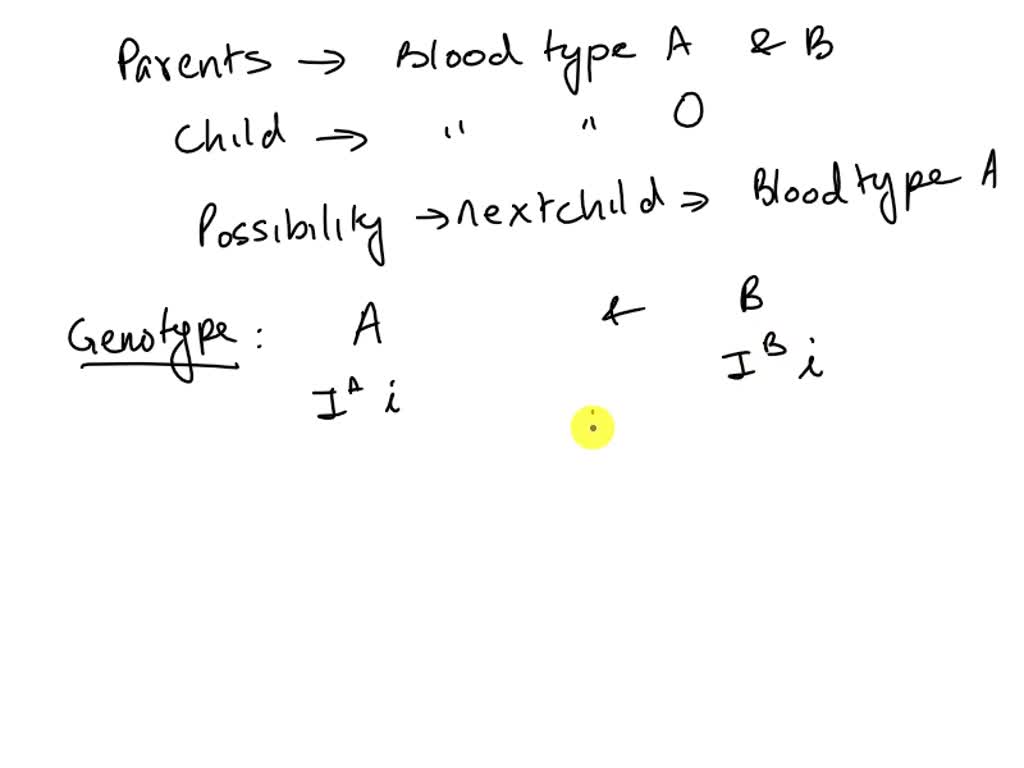 Parents → Blood type A & B
Child → " " O
Possibility → next child → Blood type A
Genotype : A & B
Iᴬ i Iᴮ i